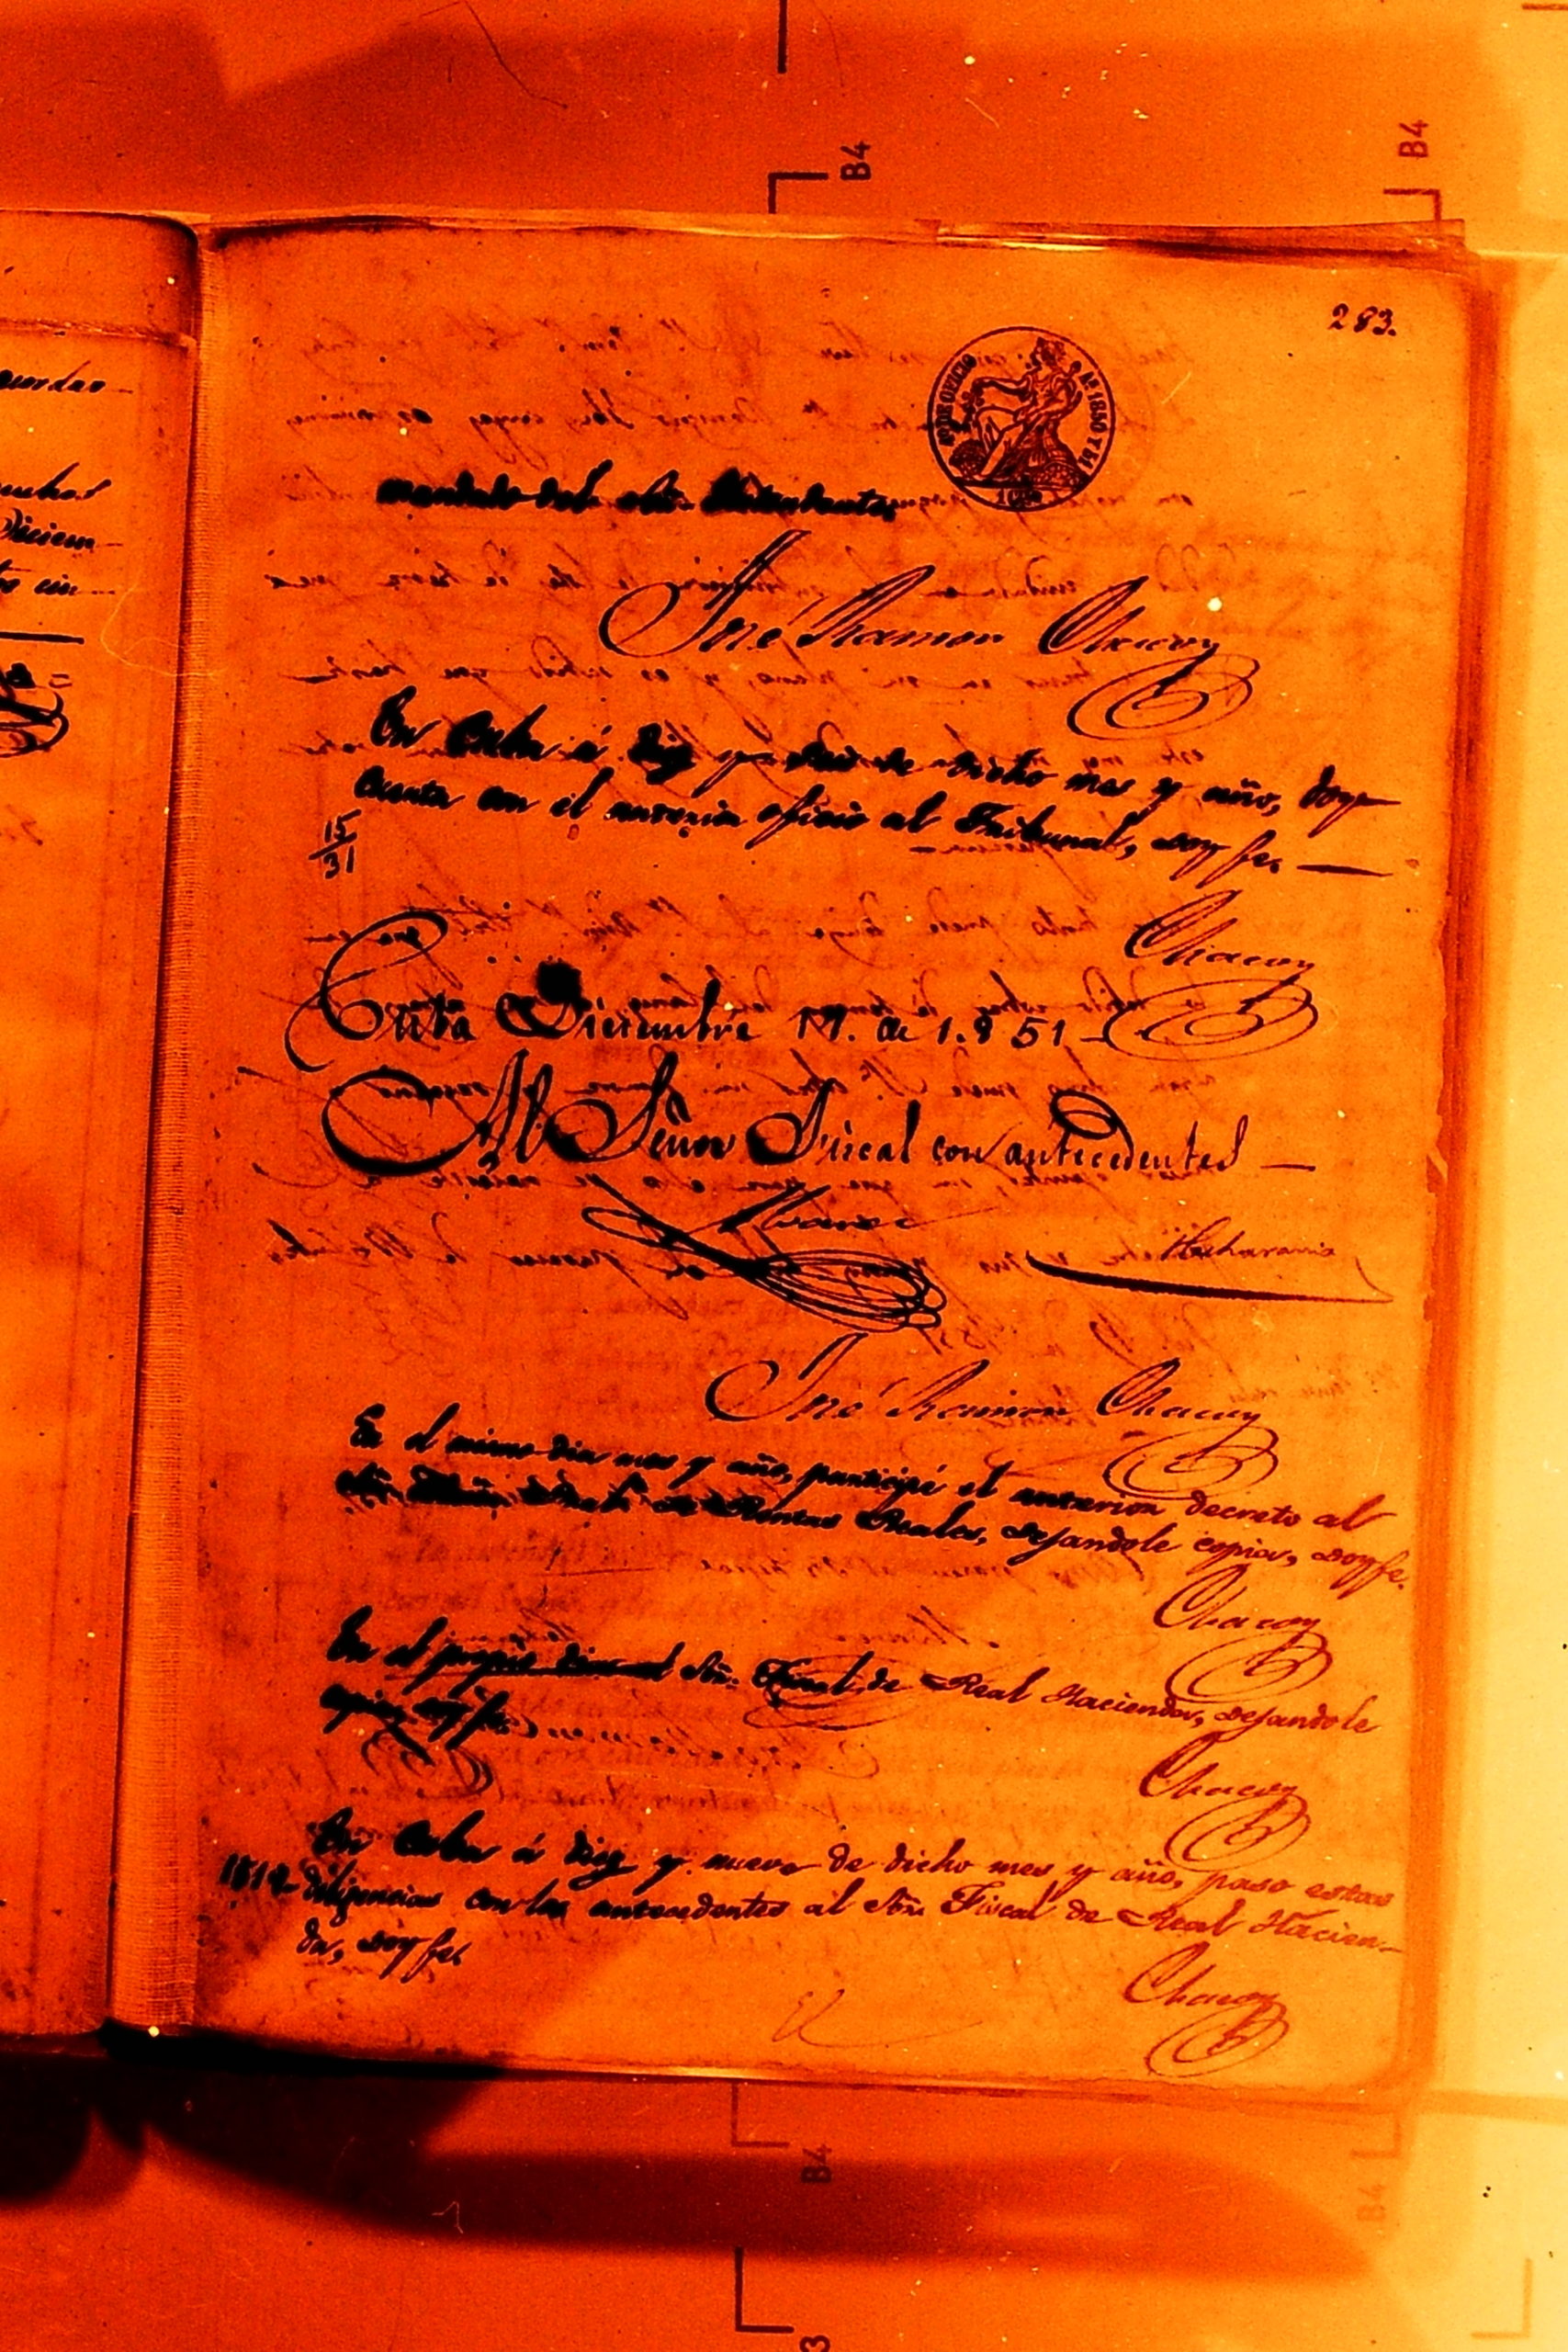 283.
Sº DE OFICIO Aˢ 1850 Y 51
mandado del Sôr. Yntendente,
José Ramon Chacon
En Cuba á diez y seis de dicho mes y año, doy
cuenta con el anterior oficio al Tribunal, doy fe. —
15
31
Chacon
Cuba Diciembre 17. de 1.851 —
Al Señor Fiscal con antecedentes —
Alvarez
Echavarria
José Ramon Chacon
En el mismo dia mes y año, participé el anterior decreto al
Sôr. de Rentas Reales, dejandole copia, doy fe.
Chacon
En el propio dia al Sôr. Fiscal de Real Hacienda, dejandole
copia, doy fe.
Chacon
En Cuba á diez y nueve de dicho mes y año, paso estas
diligencias con los antecedentes al Sôr. Fiscal de Real Hacien-
da, doy fe.
Chacon
uchos
Diciem
B4
B4
B4
B4